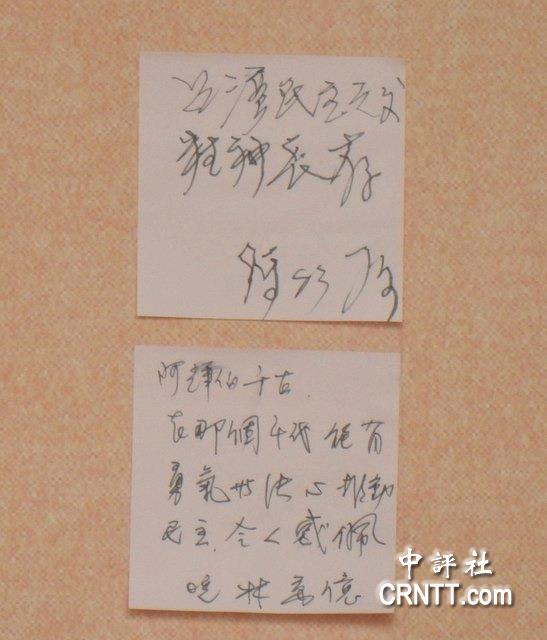 台灣民主之父
精神長存
陳
阿輝伯千古.
在那個年代能有
勇氣與決心推動
民主,令人感佩
晚 林萬億
中評社
CRNTT.com